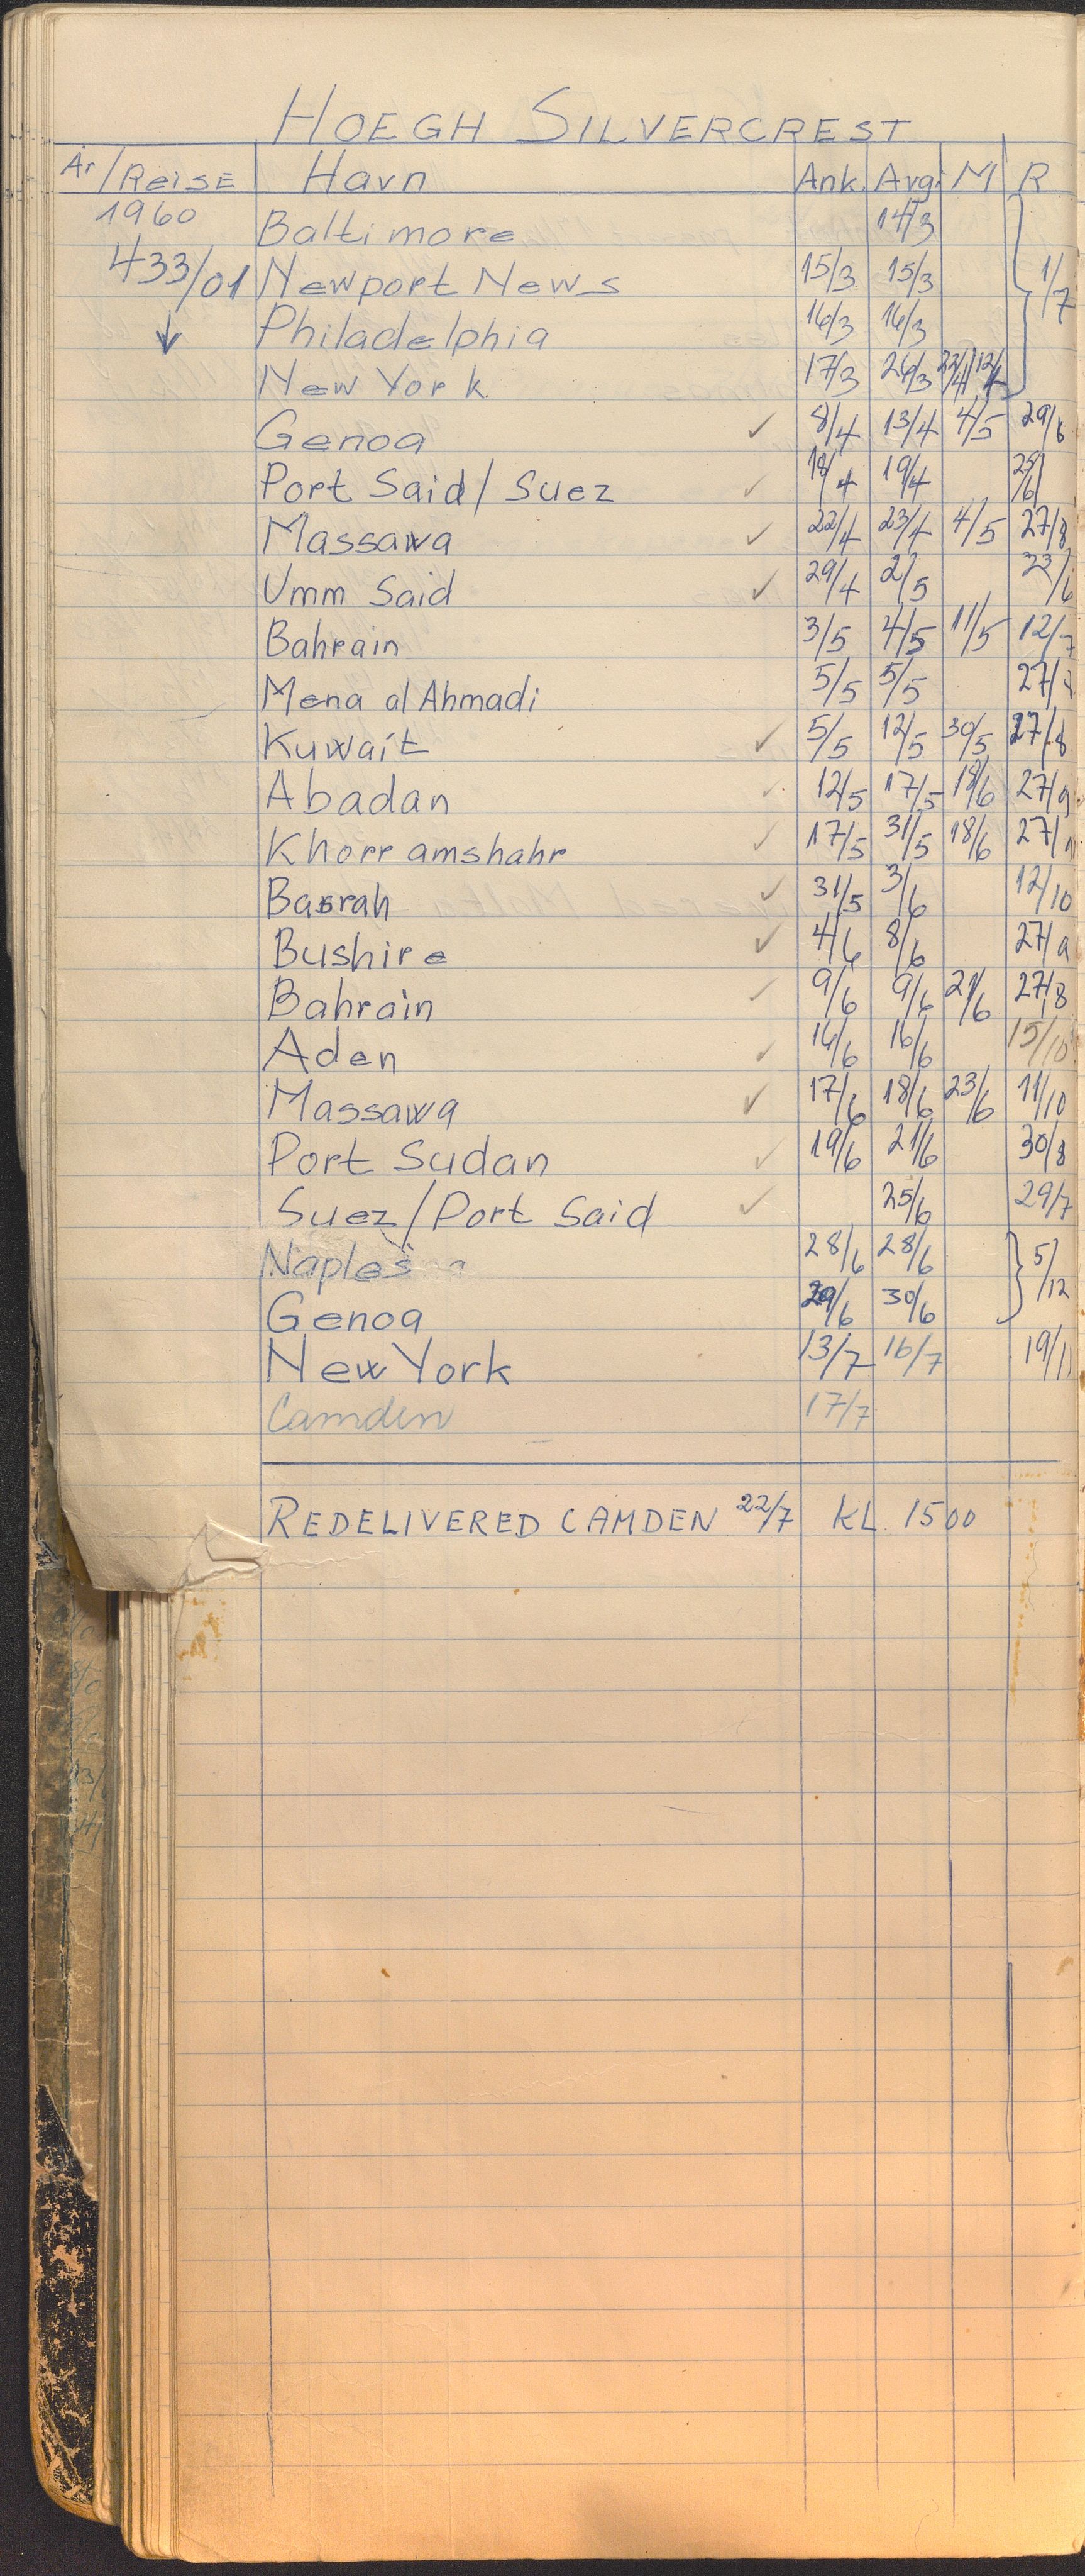 HOEGH SILVERCREST
År/Reise Havn Ank. Avg. M R
1960 Baltimore 14/3
433/01 Newport News 15/3 15/3 1/7
↓ Philadelphia 16/3 16/3
New York 17/3 26/3
Genoa ✓ 8/4 13/4 4/5 29/6
Port Said/Suez ✓ 18/4 19/4
Massawa ✓ 22/4 23/4 4/5 27/8
Umm Said ✓ 29/4 2/5 23/6
Bahrain 3/5 4/5 11/5 12/7
Mena al Ahmadi 5/5 5/5
Kuwait ✓ 5/5 12/5 30/5 27/8
Abadan ✓ 12/5 17/5 18/6 27/9
Khorramshahr ✓ 17/5 31/5 18/6
Basrah ✓ 31/5 3/6 12/10
Bushire ✓ 4/6 8/6 27/9
Bahrain ✓ 9/6 9/6 21/6 27/8
Aden ✓ 16/6 16/6 15/10
Massawa ✓ 17/6 18/6 23/6 11/10
Port Sudan ✓ 19/6 21/6 30/8
Suez/Port Said ✓ 25/6 29/7
Naples 28/6 28/6 5/12
Genoa 29/6 30/6
New York 13/7 16/7 19/11
Camden 17/7
REDELIVERED CAMDEN 22/7 KL. 1500